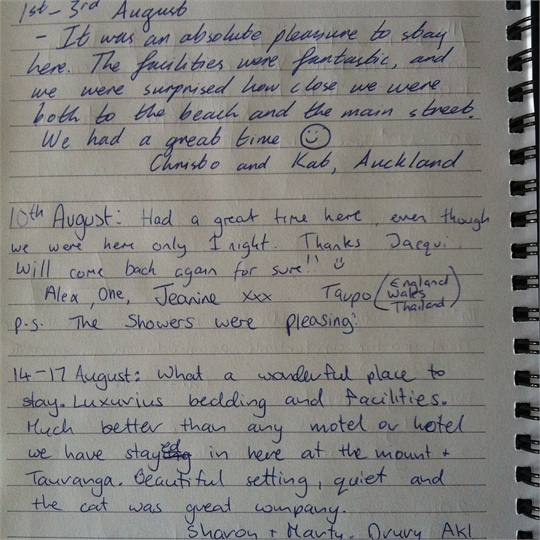 1st - 3rd August
- It was an absolute pleasure to stay
here. The facilities were fantastic, and
we were surprised how close we were
both to the beach and the main street.
We had a great time ☺
Christo and Kat, Auckland
10th August: Had a great time here, even though
we were here only 1 night. Thanks Jacqui.
Will come back again for sure!! ☺
Alex, One, Jeanine xxx Taupo (England
Wales
Thailand)
p.s. The Showers were pleasing!
14-17 August: What a wonderful place to
stay. Luxurius bedding and facilities.
Much better than any motel or hotel
we have stayed in here at the mount +
Tauranga. Beautiful setting, quiet and
the cat was great company.
Sharon + Marty. Drury AKL